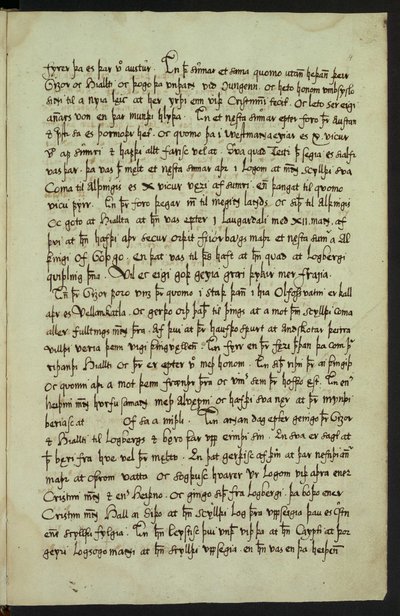 fyrer þa es þar vo austur. En þ sumar et sama quomo uttan heþan þeir
Gizor oc Hialti oc þogo þa unþans viþ kungenn. oc heto honom umbsyslo
sinni til a nyia leic at her yrþi enn viþ Cristninni tecit. oc leto ser eigi
annars von en þar mundi hlyþa. En et nesta sumar epter foro þr austan
oc prestr sa es þormoþr het. oc quomo þa i westmannaeyiar es X. vicur
vo af sumri oc hafþi allt farisc vel at. Sva quad Teitr þa segia es sialfr
vas þar. þa vas þ melt et nesta sumar aþr i logom at menn skylldi sva
coma til alþingis es X vicur veri af sumri. en þangat til quomo
vicu fyrr. En þr foro þegar inn til megin lands oc siþ til Alþingis
oc goto at Hiallta at hann vas epter i Laugardali med XII. mann. af
þvi at hann hafþi aþr secur orþit fiorbaugs maþr et nesta sumar a Al
þingi of Goþgo. En þat vas til þess haft at hann quad at Logbergi
quiþling þenna. Vil ec eigi goþ geyia grei þykir mer freyia.
En þr Gizor foro unz þr quomo i staþ þann i hia Olfossvatni er kall
aþr es Vellankatla. oc gerþo orþ þaþan til þings at a mot þeim skylldi coma
aller fulltings menn þeira. af þvi at þr hafþo spurt at andskotar þeira
villdi veria þeim vigi þingvollenn. En fyrr en þr fori þaþan þa com þar
riþandi Hiallti oc þr er epter vo meþ honom. En siþ riþo þr a þingit
oc quomo aþr a mot þeim frendr þeira oc viner sem þr hofþo est. En ener
heiþnu menn hurfu saman meþ alvepni. oc hafþi sva ner at þr myndi
beriasc at of sa a miþli. En annan dag epter gengo þr Gizor
oc Hiallti til Logbergs oc boro þar upp erindi sin. En sva er sagt at
þ beri fra hve vel þr melto. En þat gerþisc af þvi at þar nefndi annarr
maþr at oþrom vatta. oc sogþusc hvarer ur Logom viþ aþra ener
cristnu menn oc ener heiþno. oc gingo siþan fra Logbergi. þa baþo ener
Cristnu menn Hall a siþo at hann skylldi Log þeira upp segia þau es Cristn
enni skylldi fylgia. En hann leystisc þvi undan viþ þa at hann caypti at þor
geiri Logsogo manni at hann skylldi upp segia. en hann vas en þa heiþenn